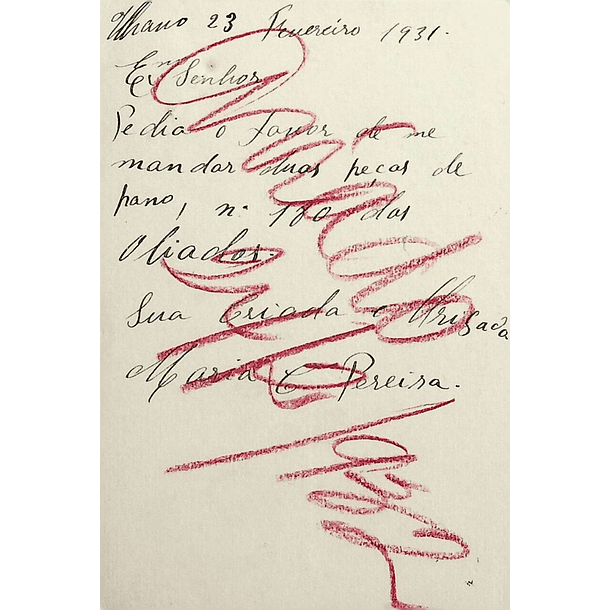 Ilhavo 23 Fevereiro 1931.
Exm Senhor
Pedia o favor de me
mandar duas peças de
pano, nº 180 dos
Aliados.
Sua Criada e Obrigada
Maria C Pereira.